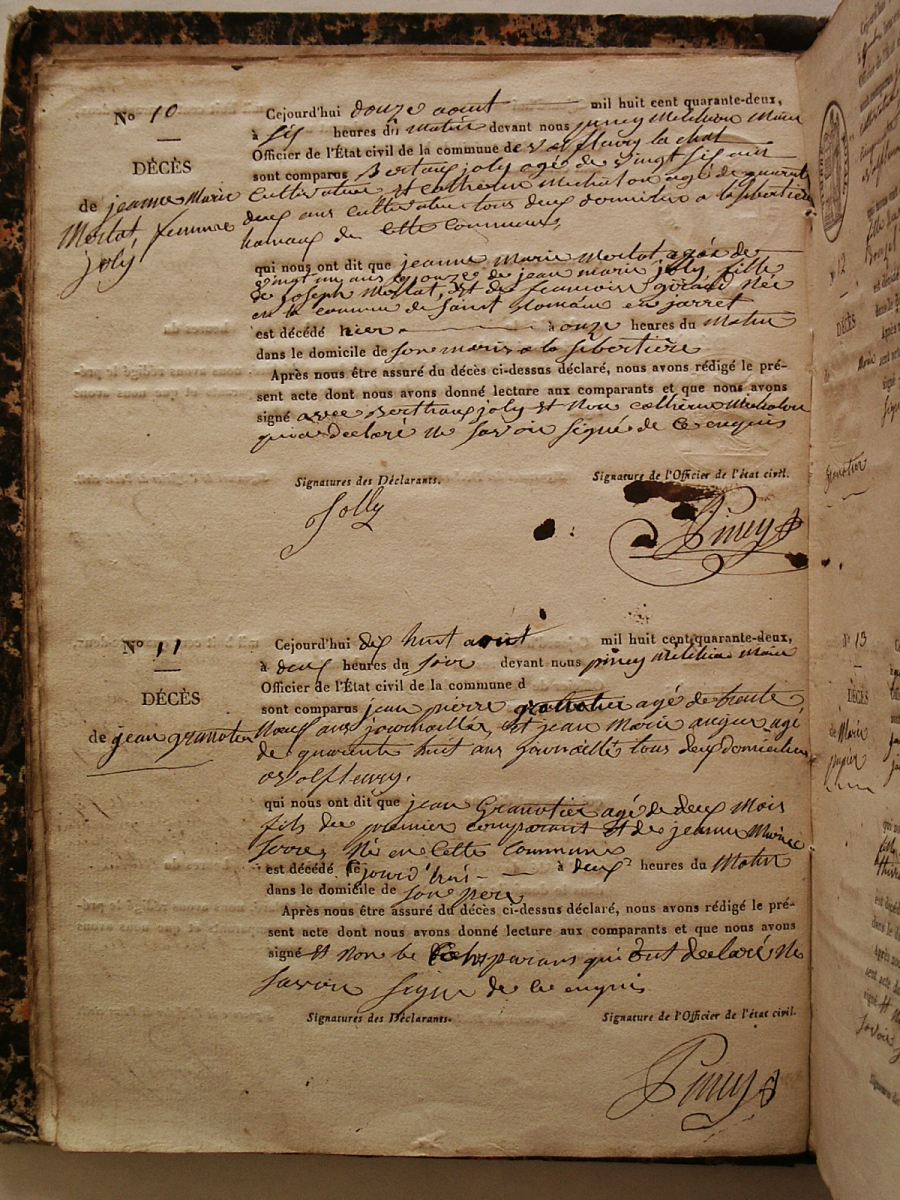 No 10
DÉCÈS
de jeanne Marie
Merlat, femme
joly
Cejourd'hui douze aout mil huit cent quarante-deux,
à six heures du matin devant nous piney Melchior Maire
Officier de l'État civil de la commune de valfleury la chat
sont comparus Bertrand joly agé de vingt six ans
Cultivateur et catherine Michalon agé de quarante
deux ans cultivatrice tous deux domicilié a la libertière
hamaux de cette commune,
qui nous ont dit que jeanne Marie Merlat, agée de
vingt un ans epouze de jean marie joly, fille
de joseph Merlat, et de francoise girard Née
en la commune de saint Romain en jarret
est décédé hier à onze heures du Matin
dans le domicile de son maris a la libertière
Après nous être assuré du décès ci-dessus déclaré, nous avons rédigé le pré-
sent acte dont nous avons donné lecture aux comparants et que nous avons
signé avec Bertrand joly et Non catherine Michalon
qui a declaré ne savoir signé de ce enquis
Signatures des Déclarants. Signature de l'Officier de l'état civil.
Jolly Piney
No 11
DÉCÈS
de jean granotier
Cejourd'hui dix huit aout mil huit cent quarante-deux,
à deux heures du soir devant nous piney Melchior Maire
Officier de l'État civil de la commune d
sont comparus jean pierre granotier agé de trente
Neuf ans journaillié, et jean Marie agé
de quarante huit ans journaillié tous deux domicilié
a valfleury.
qui nous ont dit que jean Granotier agé de deux Mois
fils du premier comparant et de jeanne Marie
Né en Cette commune
est décédé Cejourd'hui à deux heures du Matin
dans le domicile de son pere
Après nous être assuré du décès ci-dessus déclaré, nous avons rédigé le pré-
sent acte dont nous avons donné lecture aux comparants et que nous avons
signé et non le Comparans qui ont declaré Ne
savoir signe de ce enquis
Signatures des Déclarants. Signature de l'Officier de l'état civil.
Piney
No 12
DÉCÈS
No 13
DÉCÈS
de Marie